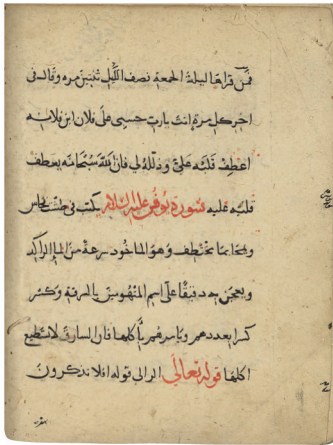 فمن قراها ليلة الجمعة نصف الليل ثنتين مره وقال في
اخر كل مرة انت يا رب حسبي على فلان ابن فلانه
اعطف قلبه علي وذلله لي فان الله سبحانه يعطف
قلبه عليه سورة يوسف عليه السلام يكتب في طشت نحاس
وهو الماخوذ سرعة من الما الراكد
ويعجن به دقيقا على اسم المتهومين بالسرقة وكسر
كسرا بعددهم ويامرهم باكلها فان السارق لا يستطيع
اكلها قوله تعالى الر الى قوله افلا تذكرون